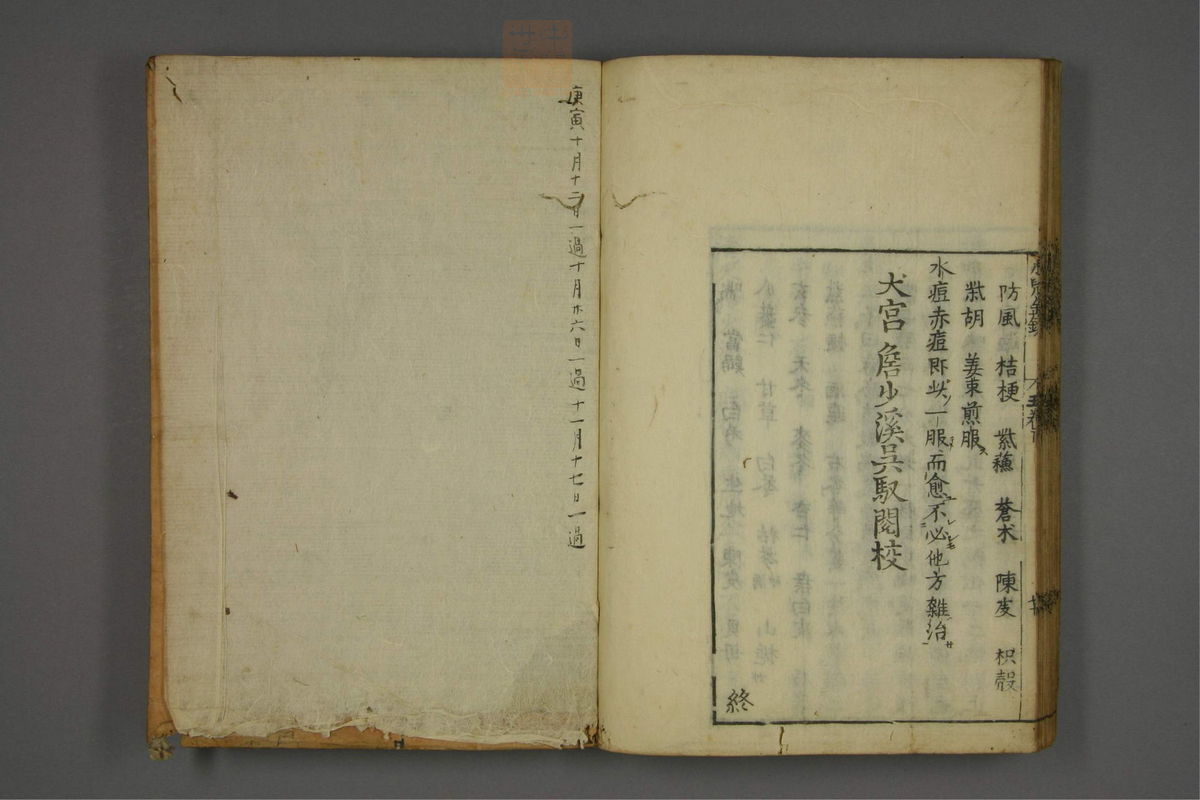 防風 桔梗 紫蘓 蒼术 陳皮 枳殼
柴胡 姜東煎服
水痘赤痘即此一服而愈不必他方雜治
犬宫 詹少溪吳馭閱校
終
庚寅十月十二日一過十月廾六日一過十一月十七日一過